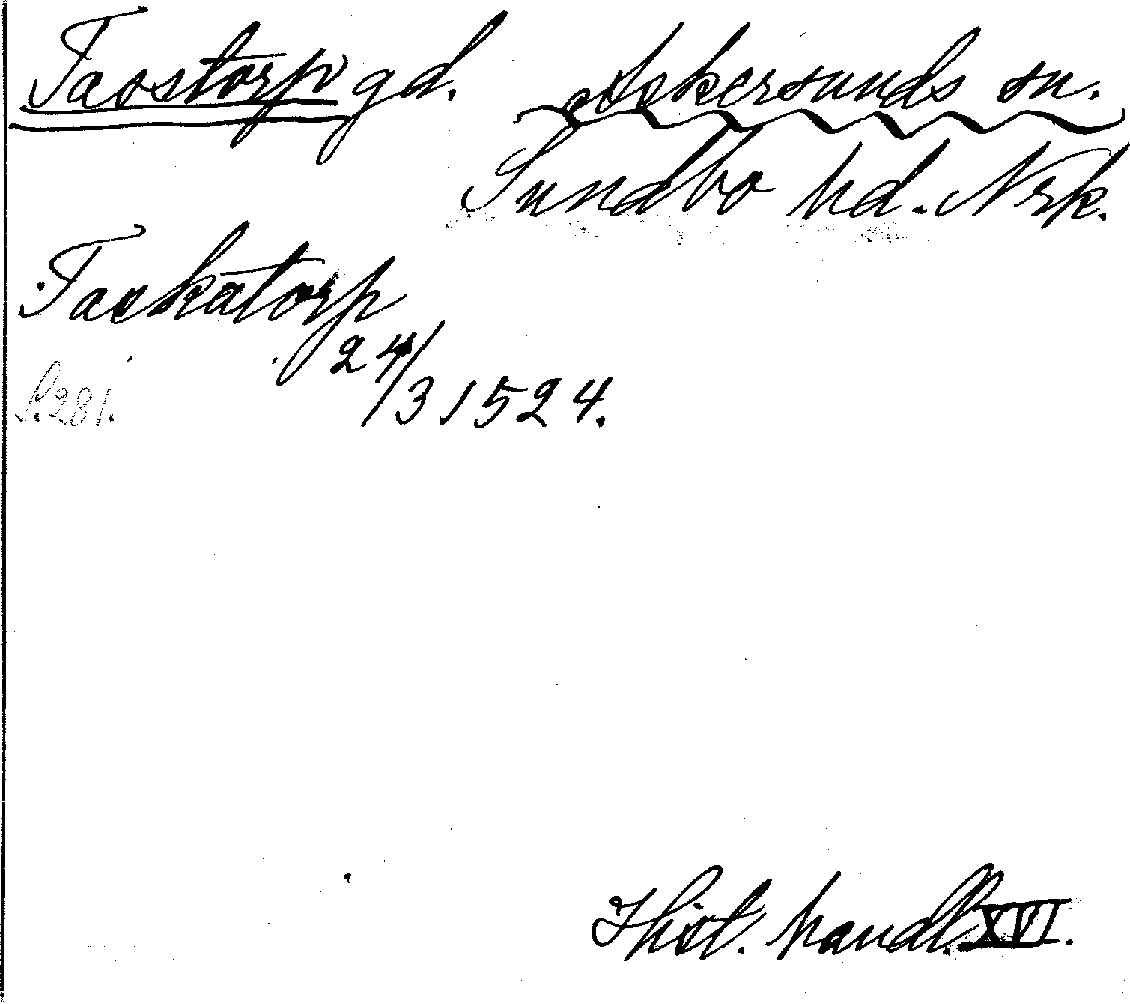 Taostorp gd. Askersunds sn.
Sundbo hd. Nrk.
Taekatorp
24/3 1524.
S. 281.
Hist. handl. XVI.